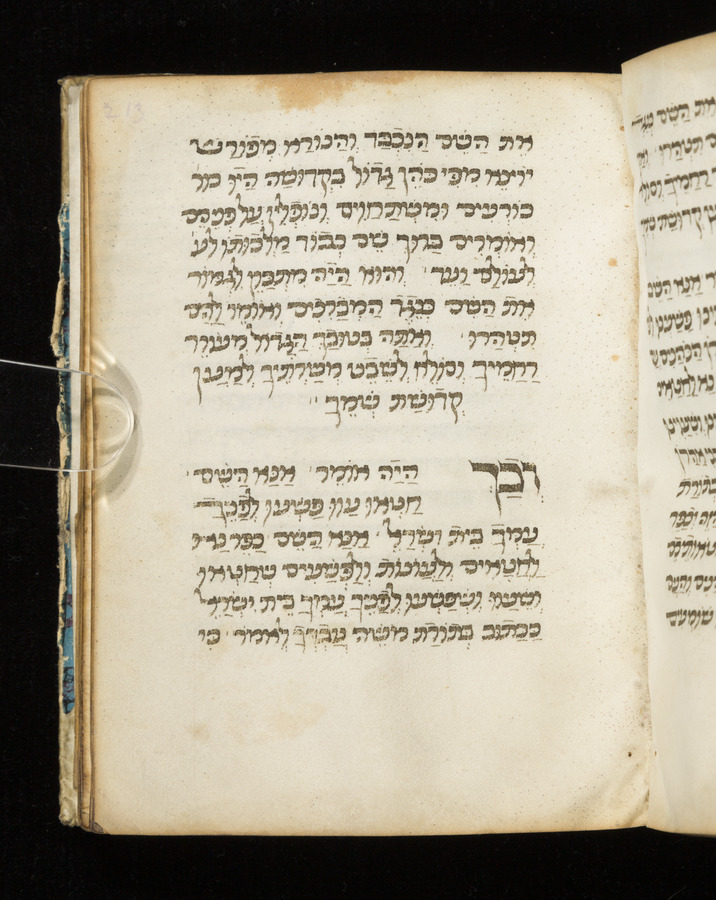 את השם הנכבד והנורא מפורש
יוצא מפי כהן גדול בקדושה היו
כורעים ומשתחוים ונופלין על פניהם
ואומרים ברוך שם כבוד מלכותו לע
לעולם ועד והוא היה מתכוין לגמור
את השם כנגד המברכים ואומר להם
תטהרו ואתה בטובך הגדול מעורר
רחמיך וסולח לשבט משרתיך למען
קדושת שמך
וכך היה אומר אנא השם
חטאו עוו פשעו לפניך
עמך בית ישראל אנא השם כפר נא
לחטאים ולעונות ולפשעים שחטאו
ושעוו ושפשעו לפניך עמך בית ישראל
ככתוב בתורת משה עבדך לאמר כי